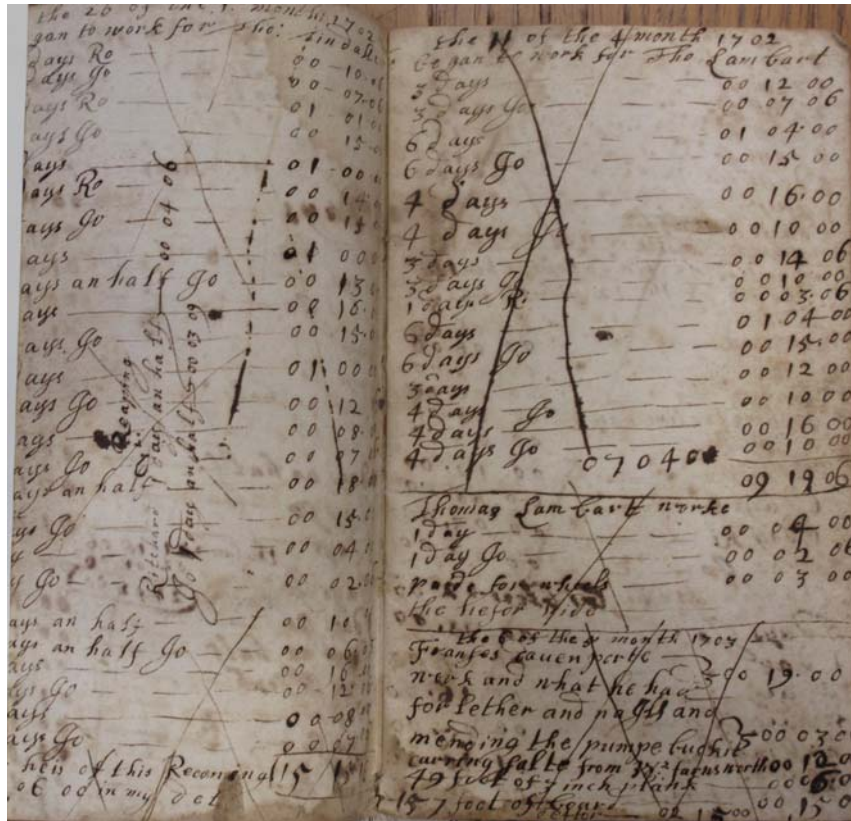 the 26 of the 1 month 1702
gan to work for Tho: Tindall
days Ro — 00-10-06
days Jo — 00-07-06
days Ro — 01-01-0
ays Jo — 00 15-0
ays — 01-00
ays Ro — 00 14
ays Jo — 00 15
ays — 01 00
ays an half Jo — 00 13
ays — 00 16
ays Jo — 00 15
ays — 01 00
ays Jo — 00 12
ays — 00 08
ays Jo — 00 07
ays an half — 00 18
ays Jo — 00 15
00 04
Jo — 00 02
ays an half — 00 10
ays an half Jo — 00 06
ays — 00 16
ays Jo — 00-12
ays — 00-08
ays Jo — 00 07
heis of this Reconing 15 15
06 00 in my det
Reaping
Ritchard 3 days an half — 00 04 06
Jo 3 days an half 00 03 09
the 11 of the 4 month 1702
began to work for Tho Lambart
3 days — 00 12 00
3 days Jo — 00 07 06
6 days — 01 04 00
6 days Jo — 00 15 00
4 days — 00 16 00
4 days Jo — 00 10 00
3 days — 00 14 06
3 days Jo — 00 10 00
1 days Ri — 00 03 06
6 days — 01 04 00
6 days Jo — 00 15 00
3 days — 00 12 00
4 days Jo — 00 10 00
4 days — 00 16 00
4 days Jo — 00 10 00
07 04 0
09 19 06
Thomas Lambart worke
1 day — 00 04 00
1 day Jo — 00 02 06
pade for wheels — 00 03 00
the hefor hide
the 6 of the month 1703
Franses Davenporte
work and what he had 00 19 00
for Lether and nayls and
mending the pumpe buckit 00 03 0
carring salte from 00 12 0
49 foot of 7 inch plank 00 6 0
157 foot of board 00 15 0
02 15 00